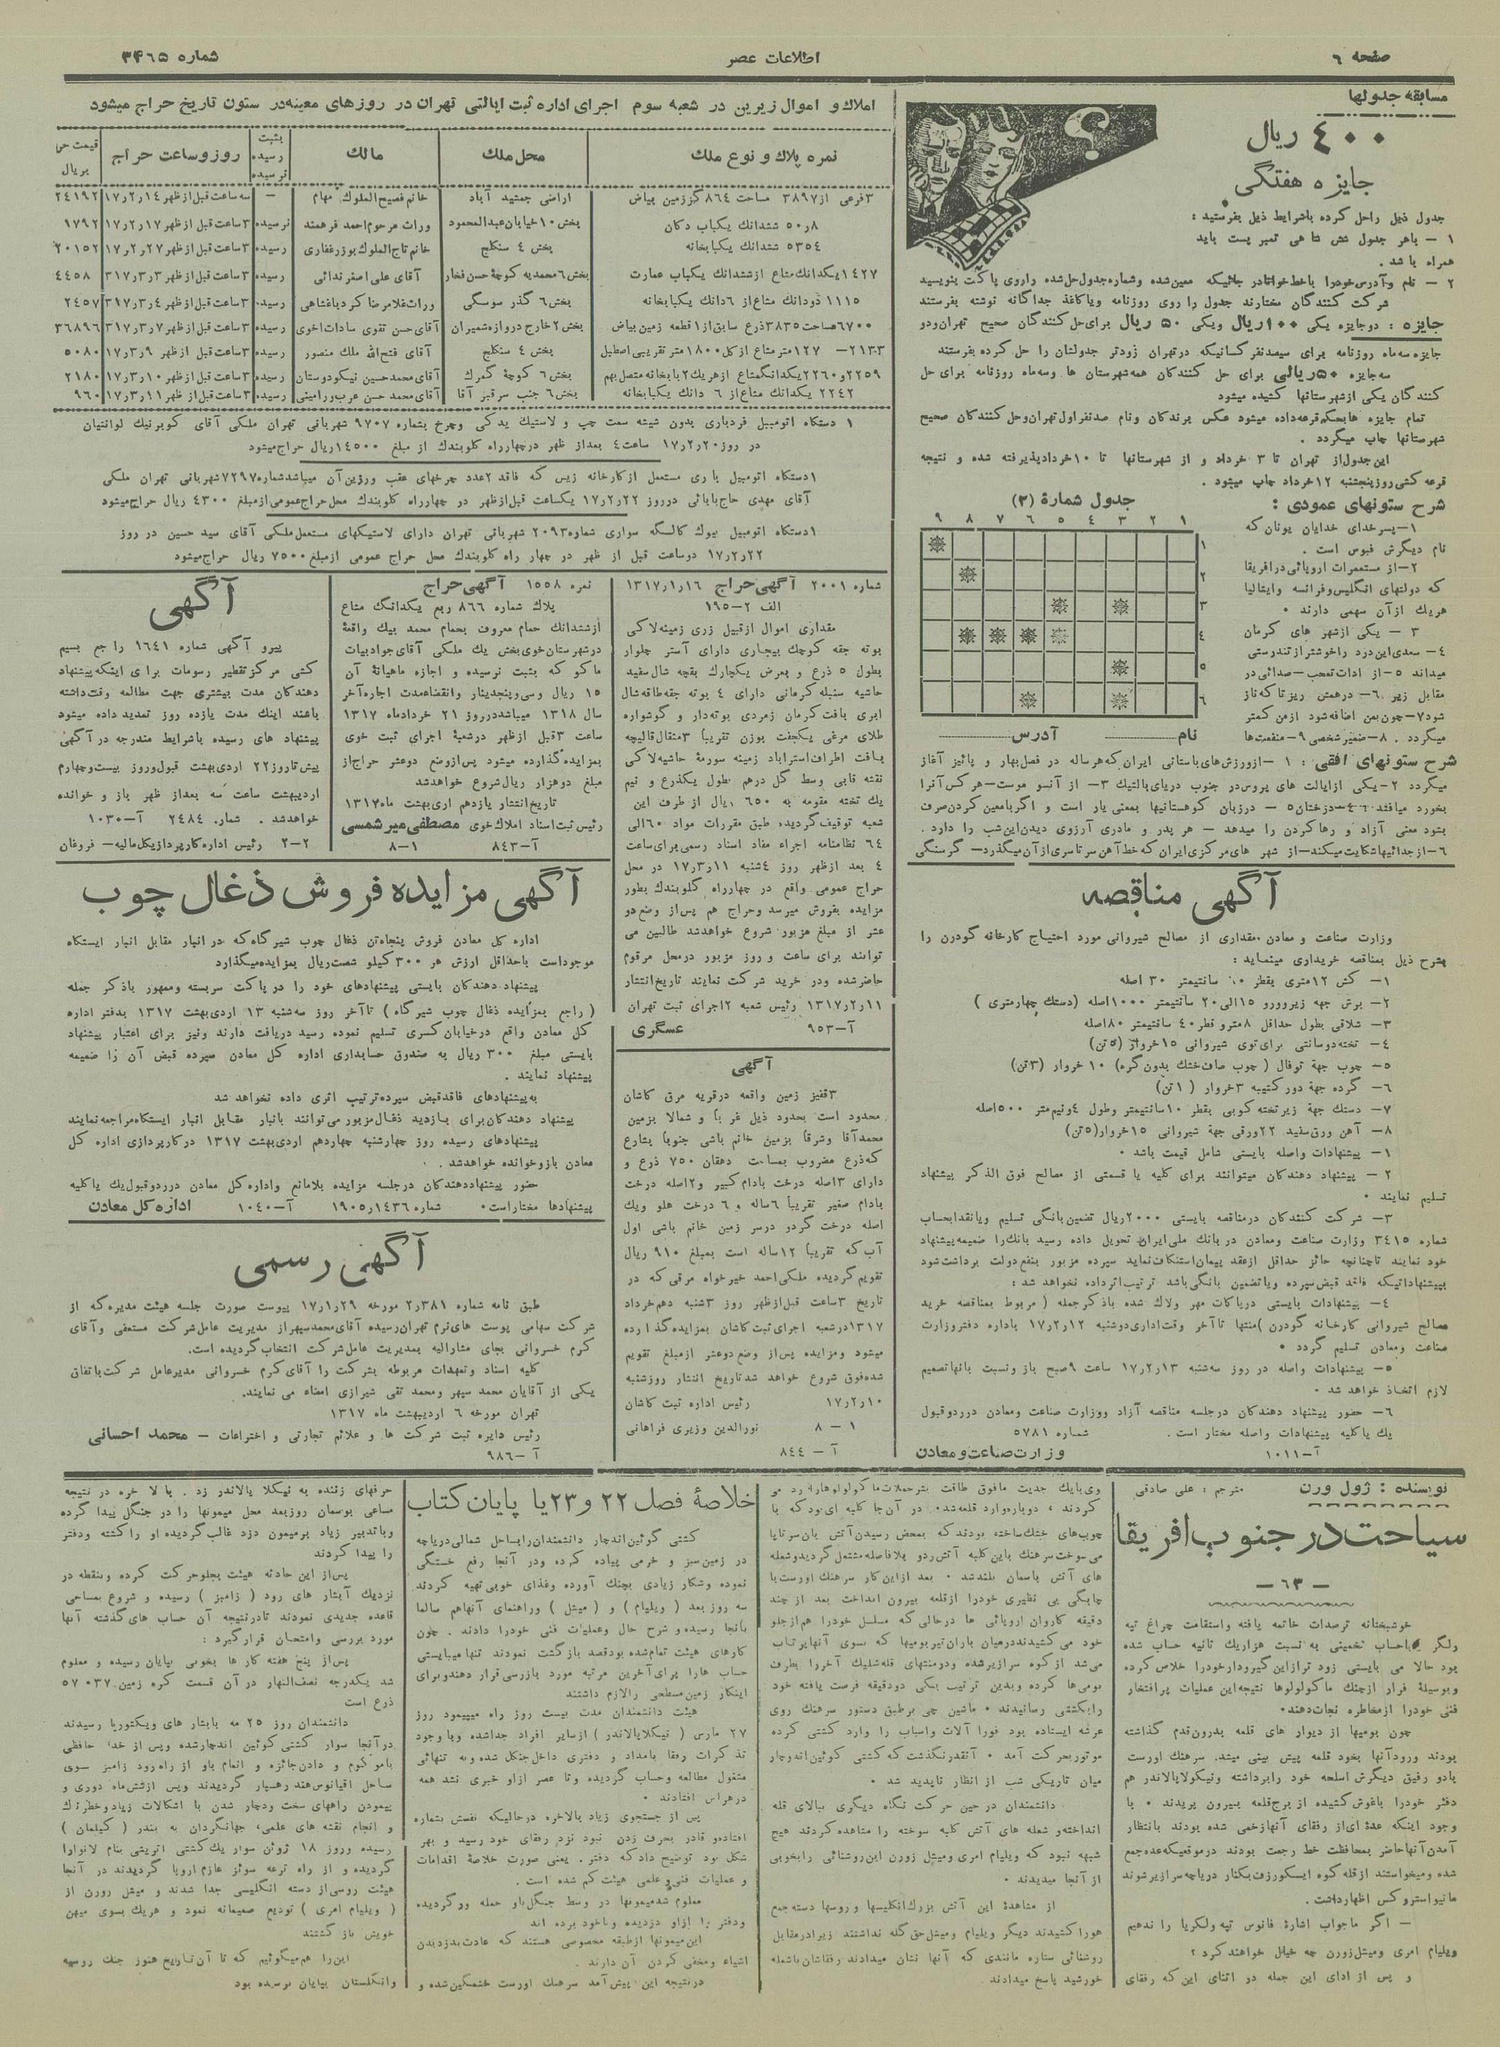 صفحه ٦
اطلاعات عصر
شماره ٣٤٦٥
مسابقه جدولها
٤٠٠ ریال
جایزه هفتگی
جدول ذیل راحل کرده باشرایط ذیل بفرستید :
١ – باهر جدول شش شاهی تمبر پست باید
همراه باشد .
٢ – نام وآدرس خودرا باخط خوانادر جائیکه معین شده وشماره جدول حل شده راروی پاکت بنویسید
شرکت کنندگان مختارند جدول را روی روزنامه ویاکاغذ جداگانه نوشته بفرستند
جایزه : دوجایزه یکی ١٠٠ریال ویکی ٥٠ ریال برای حل کنندگان صحیح تهران ودو
جایزه سه ماه روزنامه برای سیصدنفر کسانیکه درتهران زودتر جدولشان را حل کرده بفرستند
سه جایزه ٥٠ریالی برای حل کنندگان همه شهرستان ها وسه ماه روزنامه برای حل
کنندگان یکی ازشهرستانها کشیده میشود
تمام جایزه هابحکم قرعه داده میشود عکس برندگان ونام صدنفراول تهران وحل کنندگان صحیح
شهرستانها چاپ میگردد .
این جدول از تهران تا ٣ خرداد و از شهرستانها تا ١٠خردادپذیرفته شده و نتیجه
قرعه کشی روزپنجشنبه ١٢خرداد چاپ میشود .
شرح ستونهای عمودی :
جدول شمارهٔ (٣)
١–پسرخدای خدایان یونان که
نام دیگرش فبوس است .
٢–از مستعمرات اروپائی درافریقا
که دولتهای انگلیس وفرانسه وایتالیا
هریك ازآن سهمی دارند •
٣ – یکی ازشهر های کرمان
٤– سعدی این درد راخوشتر ازتندرستی
میداند ٥– از ادات تعجب – صدائی در
مقابل زیر ٦– درهمش ریز تاکه ناز
شود ٧–چون بمن اضافه شود ازمن کمتر
میگردد . ٨–ضمیر شخصی ٩–منفعت‌ها
١ ٢ ٣ ٤ ٥ ٦ ٧ ٨ ٩
١
٢
٣
٤
٥
٦
نام
آدرس
شرح ستونهای افقی : ١ –ازورزش‌های باستانی ایران که هرساله در فصل بهار و پائیز آغاز
میگردد ٢–یکی ازایالت های پروس در جنوب دریای بالتیك ٣– از آنسو موست–هرکس آنرا
بخورد میافتد ٤–درختان ٥– درزبان کوهستانیها بمعنی یار است و اگربامعین کردن صرف
بشود معنی آزاد و رهاکردن را میدهد – هر پدر و مادری آرزوی دیدن این شب را دارد .
٦–ازجدائیها شکایت میکند–از شهر های مرکزی ایران که خط آهن سرتاسری ازآن میگذرد– گرسنگی
آگهی مناقصه
وزارت صناعت و معادن مقداری از مصالح شیروانی مورد احتیاج کارخانه گودرن را
بشرح ذیل بمناقصه خریداری مینماید :
١– کش ١٢متری بقطر ٠٠ سانتیمتر ٣٠ اصله
٢– برش جهه زیروررو ١٥الی٢٠ سانتیمتر ١٠٠٠اصله (دستك چهارمتری )
٣– شلاقی بطول حداقل ٨مترو قطر٤٠ سانتیمتر ٨٠اصله
٤– تخته دوسانتی برای توی شیروانی ١٥خروار (٥تن)
٥– چوب جهة توفال ( چوب صاف خشك بدون گره) ١٠ خروار (٣تن)
٦– گرده جهة دور کتیبه ٣خروار (١تن)
٧– دستك جهة زیرتخته کوبی بقطر ١٠سانتیمتر وطول ٤ونیم متر ٥٠٠اصله
٨– آهن ورق سفید ٢٢ورقی جهة شیروانی ١٥خروار(٥تن)
١– پیشنهادات واصله بایستی شامل قیمت باشد •
٢ – پیشنهاد دهندگان میتوانند برای کلیه یا قسمتی از مصالح فوق الذکر پیشنهاد
تسلیم نمایند •
٣– شرکت کنندگان درمناقصه بایستی ٢٠٠٠ریال تضمین بانگی تسلیم ویانقدابحساب
شماره ٣٤١٥ وزارت صناعت ومعادن در بانك ملی ایران تحویل داده رسید بانك را ضمیمه پیشنهاد
خود نمایند تاچنانچه حائز حداقل ازعقد پیمان استنکاف نماید سپرده مزبور بنفع دولت برداشت شود
بپیشنهاداتیکه فاقد قبض سپرده ویاتضمین بانگی باشد ترتیب اثرداده نخواهد شد :
٤– پیشنهادات بایستی درپاکات مهر ولاك شده باذکر جمله ( مربوط بمناقصه خرید
مصالح شیروانی کارخانه گودرن )منتها تاآخر وقت اداری دوشنبه ١٧٫٢٫١٢ باداره دفتر وزارت
صناعت ومعادن تسلیم گردد •
٥– پیشنهادات واصله در روز سه شنبه ١٧٫٢٫١٣ ساعت ٩صبح باز ونسبت بآنهاتصمیم
لازم اتخاذ خواهد شد •
٦– حضور پیشنهاد دهندگان درجلسه مناقصه آزاد ووزارت صناعت ومعادن دررد وقبول
یك یاکلیه پیشنهادات واصله مختار است .
شماره ٥٧٨١
آ–١٠١١
وزارت صناعت ومعادن
املاك و اموال زیرین در شعبه سوم اجرای اداره ثبت ایالتی تهران در روزهای معینه در ستون تاریخ حراج میشود
نمره پلاك و نوع ملك | محل ملك | مالك | بثبت رسیده نرسیده | روز وساعت حراج | قیمت حر بریال
٣فرعی از٣٨٩٧ مساحت ٨٦٤گززمین بیاض | اراضی جمشید آباد | خانم فصیح الملوك مهام | – | سه ساعت قبل ازظهر ١٧٫٢٫١٤ | ٢٤١٩٢
٨ر٥٠ ششدانك یکباب دکان | بخش ١٠خیابان عبدالمحمود | وراث مرحوم احمد فرهمند | نرسیده | ٣ساعت قبل ازظهر ١٧٫٢٫١٧ | ١٧٩٢
٥٣٥٤ ششدانك یکبابخانه | بخش ٤ سنکلج | خانم تاج الملوك بوزرغفاری | رسیده | ٣ساعت قبل ازظهر ١٧٫٢٫٢٧ | ٢٠١٥٢
١٤٢٧یکدانك مشاع ازششدانك یکباب عمارت | بخش ٦محمدیه کوچهٔ حسن فخار | آقای علی اصغرندائی | رسیده | ٣ساعت قبل ازظهر ٣٫٣٫٣١٧ | ٤٤٥٨
١١١٥ دودانك مشاع از٦دانك یکبابخانه | بخش ٦ گذر سوسکی | وراث غلامرضا کردباغشاهی | رسیده | ٣ساعت قبل ازظهر ٤٫٣٫٣١٧ | ٢٤٥٧
٦٧٠٠مساحت٣٨٣٥ذرع سابق از١قطعه زمین بیاض | بخش ٢خارج دروازه شمیران | آقای حسن تقوی سادات اخوی | رسیده | ٣ساعت قبل ازظهر ٧٫٣٫٣١٧ | ٣٦٨٩٦
٢١٣٣– ١٢٧متر مشاع از کل ١٨٠٠متر تقریبی اصطبل | بخش ٤ سنکلج | آقای فتح الله ملك منصور | رسیده | ٣ساعت قبل از ظهر ١٧٫٣٫٩ | ٥٠٨٠
٢٢٥٩و٢٢٦٠یکدانگمشاع ازهریك٢بابخانه متصل بهم | بخش ٦ کوچهٔ گمرك | آقای محمدحسین نیکودوستان | رسیده | ٣ساعت قبل ازظهر ١٧٫٣٫١٠ | ٢١٨٠
٢٢٤٢ یکدانك مشاع از ٦ دانك یکبابخانه | بخش٦ جنب سرقبر آقا | آقای محمد حسن عرب ورامینی | رسیده | ٣ساعت قبل ازظهر ١٧٫٣٫١١ | ٩٦٠
١ دستگاه اتومبیل فردباری بدون شیشه سمت چپ و لاستیك یدکی وچرخ بشماره ٩٧٠٧ شهربانی تهران ملکی آقای کوبرنیك لوانتیان
در روز ١٧٫٢٫٢٠ ساعت٤ بعداز ظهر درچهارراه کلوبندك از مبلغ ١٤٥٠٠ریال حراج میشود
١دستگاه اتومبیل باری مستعمل ازکارخانه زیس که فاقد ٢عدد چرخهای عقب ورزین آن میباشدشماره٧٢٩٧شهربانی تهران ملکی
آقای مهدی حاج بابائی درروز ١٧٫٢٫٢٢ یکساعت قبل ازظهر در چهارراه کلوبندك محل حراج عمومی ازمبلغ ٤٣٠٠ ریال حراج میشود
١دستگاه اتومبیل بیوك کالسگه سواری شماره٢٠٩٣ شهربانی تهران دارای لاستیکهای مستعمل ملکی آقای سید حسین در روز
١٧٫٢٫٢٢ دوساعت قبل از ظهر در چهار راه کلوبندك محل حراج عمومی ازمبلغ ٧٥٠٠ ریال حراج میشود
شماره ٢٠٠١ آگهی حراج ١٣١٧٫١٫١٦
الف ٢–١٩٥
مقداری اموال ازقبیل زری زمینه لاکی
بوته جقه کوچك بیجاری دارای آستر چلوار
بطول ٥ ذرع و بعرض یکچارك بقچه شال سفید
حاشیه سنبله کرمانی دارای ٤ بوته جقه طاقه شال
ابری بافت کرمان زمردی بوته دار و گوشواره
طلای مرغی یکجفت بوزن تقریباً ٣مثقال قالیچه
بافت اطراف استرآباد زمینه سورمهٔ حاشیه لاکی
نقشه قابی وسط گل درهم بطول یکذرع و نیم
یك تخته مقومه به ٦٥٠ ریال از طرف این
شعبه توقیف گردیده طبق مقررات مواد ٦٠الی
٦٤ نظامنامه اجراء مفاد اسناد رسمی برای ساعت
٤ بعد ازظهر روز ٤شنبه ١٧٫٣٫١١ در محل
حراج عمومی واقع در چهارراه کلوبندك بطور
مزایده بفروش میرسد وحراج هم پس از وضع دو
عشر از مبلغ مزبور شروع خواهدشد طالبین می
توانند برای ساعت و روز مزبور درمحل مرقوم
حاضرشده ودر خرید شرکت نمایند تاریخ انتشار
١٣١٧٫٢٫١١ رئیس شعبه ٢اجرای ثبت تهران
آ–٩٥٣
عسگری
آگهی
٣قفیز زمین واقعه درقریه مرق کاشان
محدود است بحدود ذیل غربا و شمالا بزمین
محمدآقا وشرقا بزمین خانم باشی جنوبا بشارع
که ذرع مضروب بمساحت دهقان ٧٥٠ ذرع و
دارای ٣اصله درخت بادام کبیر و٢اصله درخت
بادام صغیر تقریباً ٦ساله و ٦ درخت هلو ویك
اصله درخت گردو درسر زمین خانم باشی اول
آب که تقریباً ١٢ساله است بمبلغ ٩١٠ ریال
تقویم گردیده ملکی احمد خیرخواه مرقی که در
تاریخ ٣ساعت قبل ازظهر روز ٣شنبه دهم خرداد
١٣١٧درشعبه اجرای ثبت کاشان بمزایده گذارده
میشود ومزایده پس از وضع دوعشر ازمبلغ تقویم
شده فوق شروع خواهد شد تاریخ انتشار روزشنبه
١٧٫٢٫١٠ رئیس اداره ثبت کاشان
١ – ٨ نورالدین وزیری فراهانی
آ – ٨٤٤
نمره ١٥٥٨ آگهی حراج
پلاك شماره ٨٦٦ ربع یکدانگ مشاع
ازششدانك حمام معروف بحمام محمد بیك واقعهٔ
درشهرستان خوی بخش یك ملکی آقای جوادبیات
ماکو که بثبت نرسیده و اجازه ماهیانهٔ آن
١٥ ریال وسی وپنجدینار وانقضاءمدت اجاره آخر
سال ١٣١٨ میباشددرروز ٢١ خردادماه ١٣١٧
ساعت ٣قبل ازظهر درشعبهٔ اجرای ثبت خوی
بمزایده گذارده میشود پس ازوضع دوعشر حراج از
مبلغ دوهزار ریال شروع خواهدشد
تاریخ انتشار یازدهم اردیبهشت ماه ١٣١٧
رئیس ثبت اسناد املاك خوی مصطفی میر شمسی
آ–٨٤٣ ١–٨
آگهی
پیرو آگهی شماره ١٦٤١ راجع بسیم
کشی مرکز تقطیر رسومات برای اینکه پیشنهاد
دهندگان مدت بیشتری جهت مطالعه وقت داشته
باشند اینك مدت یازده روز تمدید داده میشود
پیشنهاد های رسیده باشرایط مندرجه در آگهی
پیش تاروز٢٢ اردیبهشت قبول وروز بیست وچهارم
اردیبهشت ساعت سه بعداز ظهر باز و خوانده
خواهدشد . شماره ٢٤٨٤ آ–١٠٣٠
٢–٢ رئیس اداره کارپردازیکل مالیه – فروغان
آگهی مزایده فروش ذغال چوب
اداره کل معادن فروش پنجاه تن ذغال چوب شیرگاه که درانبار مقابل انبار ایستگاه
موجوداست باحداقل ارزش هر ٣٠٠کیلو شصت ریال بمزایده میگذارد
پیشنهاد دهندگان بایستی پیشنهادهای خود را درپاکت سربسته وممهور باذکر جمله
( راجع بمزایده ذغال چوب شیرگاه ) تاآخر روز سه شنبه ١٣ اردیبهشت ١٣١٧ بدفتر اداره
کل معادن واقع درخیابان کسری تسلیم نموده رسید دریافت دارند ونیز برای اعتبار پیشنهاد
بایستی مبلغ ٣٠٠ ریال به صندوق حسابداری اداره کل معادن سپرده قبض آن را ضمیمه
پیشنهاد نمایند .
به پیشنهادهای فاقدقبض سپرده ترتیب اثری داده نخواهد شد
پیشنهاد دهندگان برای بازدید ذغال مزبور می‌توانند بانبار مقابل انبار ایستگاه مراجعه نمایند
پیشنهادهای رسیده روز چهارشنبه چهاردهم اردیبهشت ١٣١٧ درکارپردازی اداره کل
معادن بازوخوانده خواهدشد .
حضور پیشنهاددهندگان درجلسه مزایده بلامانع واداره کل معادن دررد وقبول یك یاکلیه
پیشنهادها مختاراست• شماره ١٩٠٥٫١٤٣٦ آ–١٠٤٠ اداره کل معادن
آگهی رسمی
طبق نامه شماره ٢٫٣٨١ مورخه ١٧٫١٫٢٩ پیوست صورت جلسه هیئت مدیره که از
شرکت سهامی پوست های نرم تهران رسیده آقای محمدسپهر از مدیریت عامل شرکت مستعفی وآقای
کرم خسروانی بجای مشارالیه بمدیریت عامل شرکت انتخاب گردیده است.
کلیه اسناد وتعهدات مربوطه بشرکت را آقای کرم خسروانی مدیرعامل شرکت باتفاق
یکی از آقایان محمد سپهر ومحمد تقی شیرازی امضاء می نمایند.
تهران مورخه ٦ اردیبهشت ماه ١٣١٧
رئیس دایره ثبت شرکت ها و علائم تجارتی و اختراعات – محمد احسائی
آ–٩٨٦
نویسنده : ژول ورن مترجم : علی صادقی
سیاحت در جنوب افریقا
– ٦٣ –
خوشبختانه ترصدات خاتمه یافته واستقامت چراغ تپه
ولگر باحساب تخمینی به نسبت هزاریك ثانیه حساب شده
بود حالا می بایستی زود ترازاین گیرودار خودرا خلاص کرده
وبوسیلهٔ فرار ازچنك ماکولولوها نتیجه این عملیات پرافتخار
فنی خودرا ازمخاطره نجات دهند•
چون بومیها از دیوار های قلعه بدرون قدم گذاشته
بودند ورودآنها بخود قلعه پیش بینی میشد. سرهنك اورست
بادو رفیق دیگرش اسلحه خود رابرداشته ونیکولاپالاندر هم
دفتر خودرا باغوش کشیده از برج قلعه بیرون پریدند • با
وجود اینکه عدهٔ ای از رفقای آنهازخمی شده بودند بانتظار
آمدن آنهاحاضر بمحافظت خط رجعت بودند درموقعیکه عده جمع
شده ومیخواستند ازقله کوه ایسکورزف بکنار دریاچه سرازیر شوند
مانیواستروکس اظهار داشت.
– اگر ماجواب اشارهٔ فانوس تپه ولکریا را ندهیم
ویلیام امری ومیشل زورن چه خیال خواهند کرد ؟
و پس از ادای این جمله در اثنای این که رفقای
کردند ، دوباره وارد قلعه شد. در آن جا کلبه ای بود که با
چوب‌های خشك ساخته بودند که بمحض رسیدن آتش بآن سرتاپا
می سوخت سرهنك باین کلبه آتش زد و بلافاصله مشتعل گردید وشعله
های آتش بآسمان بلند شد • بعد ازاین کار سرهنك اورست با
چابکی بی نظیری خودرا ازقلعه بیرون انداخت بعد از چند
دقیقه کاروان اروپائی ها درحالی که مسلسل خودرا هم از جلو
خود می کشیدند درمیان باران تیر بومیها که بسوی آنها پرتاب
می شد از کوه سرازیر شده ودومنتهای قله شلیك آخررا بطرف
بومی‌ها کرده وبدین ترتیب یکی دودقیقه فرصت یافته خود
رابکشتی رسانیدند • ماشین چی برطبق دستور سرهنك روی
عرشه ایستاده بود فورا آلات واسباب را وارد کشتی کرده
موتور بحرکت آمد • آنقدر نگذشت که کشتی کوئین اندچار
میان تاریکی شب از انظار ناپدید شد •
دانشمندان در حین حرکت نگاه دیگری ببالای قله
انداخته و شعله های آتش کلبه سوخته را مشاهده کردند هیچ
شبهه نبود که ویلیام امری ومیشل زورن این روشنائی رابخوبی
از آنجا میدیدند •
از مشاهدهٔ این آتش بزرك انگلیسها و روسها دسته جمع
هورا کشیدند دیگر ویلیام ومیشل حق گله نداشتند زیرادرمقابل
روشنائی ستاره مانندی که آنها نشان میدادند رفقاشان باشعله
خورشید پاسخ میدادند.
خلاصهٔ فصل ٢٢ و ٢٣یا پایان کتاب
کشتی کوئین اندچار دانشمندان رابساحل شمالی دریاچه
در زمین سبز و خرمی پیاده کرده ودر آنجا رفع خستگی
نموده وشکار زیادی بچنك آورده وغذای خوبی تهیه کردند
سه روز بعد ( ویلیام ) و ( میشل ) وراهنمای آنهاهم سالما
بآنجا رسیده و شرح حال وعملیات فنی خودرا دادند . چون
کارهای هیئت تمام شده بود قصد بازگشت نمودند تنها میبایستی
حساب هارا برای آخرین مرتبه مورد بازرسی قرار دهند وبرای
اینکار زمین مسطحی رالازم داشتند
هیئت دانشمندان مدت بیست روز راه میپیمود روز
٢٧ مارس ( نیکلاپالاندر ) ازسایر افراد جداشده وباوجود
تذکرات رفقا بامداد و دفتری داخل جنگل شده وبه تنهائی
مشغول مطالعه وحساب گردیده وتا عصر ازاو خبری نشد همه
درهراس افتادند •
پس از جستجوی زیاد بالاخره درحالیکه نفسش بشماره
افتاده و قادر بحرف زدن نبود نزدم رفقای خود رسید و بهر
شکل بود توضیح داد که دفتر . یعنی صورت خلاصهٔ اقدامات
و عملیات فنی وعلمی هیئت گم شده است .
معلوم شدمیمونها در وسط جنگل باو حمله ور گردیده
ودفتر را ازاو دزدیده وباخود برده اند
این میمونها ازطبقه مخصوصی هستند که عادت بدزدیدن
اشیاء ومخفی کردن آن دارند .
درنتیجه این پیش آمد سرهنك اورست خشمگین شده و
حرفهای زننده به نیکلا پالاندر زد . بالاخره در نتیجه
مساعی بوسمان روزبعد محل میمونها را در جنگل پیدا کرده
وباتدبیر زیاد برمیمون دزد غالب گردیده او راکشته ودفتر
را پیدا کردند
پس از این حادثه هیئت بجلو حرکت کرده وبنقطه در
نزدیك آبشار های رود ( زامبز ) رسیده و شروع بمساحی
قاعده جدیدی نمودند تادرنتیجه آن حساب های گذشته آنها
مورد بررسی وامتحان قرار گیرد :
پس از پنج هفته کار ها بخوبی بپایان رسیده و معلوم
شد یکدرجه نصف النهار در آن قسمت کره زمین ٥٧٠٣٧
ذرع است
دانشمندان روز ٢٥ مه بآبشار های ویکتوریا رسیدند
درآنجا سوار کشتی کوئین اندچار شده وپس از خدا حافظی
باموکوم و دادن جائزه و انعام باو از راه رود زامبز سوی
ساحل اقیانوس هند رهسپار گردیدند وپس ازشش ماه دوری و
پیمودن راههای سخت ودچار شدن با اشکالات زیاد وخطرناك
و انجام نقشه های علمی، جهانگردان به بندر ( کیلمان )
رسیده وروز ١٨ ژوئن سوار یك کشتی اتریشی بنام لانوآرا
گردیده و از راه ترعه سوئز عازم اروپا گردیدند در آنجا
هیئت روسی از دسته انگلیسی جدا شدند و میشل زورن از
( ویلیام امری ) تودیع صمیمانه نمود و هریك بسوی میهن
خویش باز گشتند
این را هم میگوئیم که تا آن تاریخ هنوز جنك روسیه
وانگلستان بپایان نرسیده بود